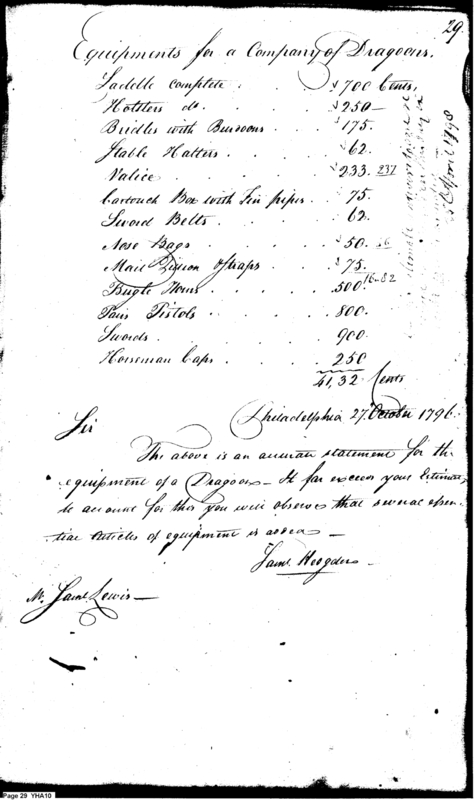 29
Equipments for a Company of Dragoons.
Saddle complete . . . $700 Cents,
Holsters do. . . . $250—
Bridles with Burdoons . . . $175.
Stable Halters . . . $62.
Valice . . . $233. 237
Cartouch Box with Tin pipes . . 75.
Sword Belts . . . 62.
Nose Bags . . . $50. 56
Mail Pillion & Straps . . $75.
Bugle Horns . . . 500. 16-82
Pair Pistols . . . 800.
Swords . . . 900.
Horseman Caps . . . 250
41,32 Cents
April 1798
Philadelphia 27. October 1796.
Sir
The above is an accurate statement for the
equipment of a Dragoon— It far exceeds your Estimate
to account for this you will observe that several essen-
tial articles of equipment is added—
Saml. Hodgdon
Mr. Saml. Lewis—
Page 29 YHA10